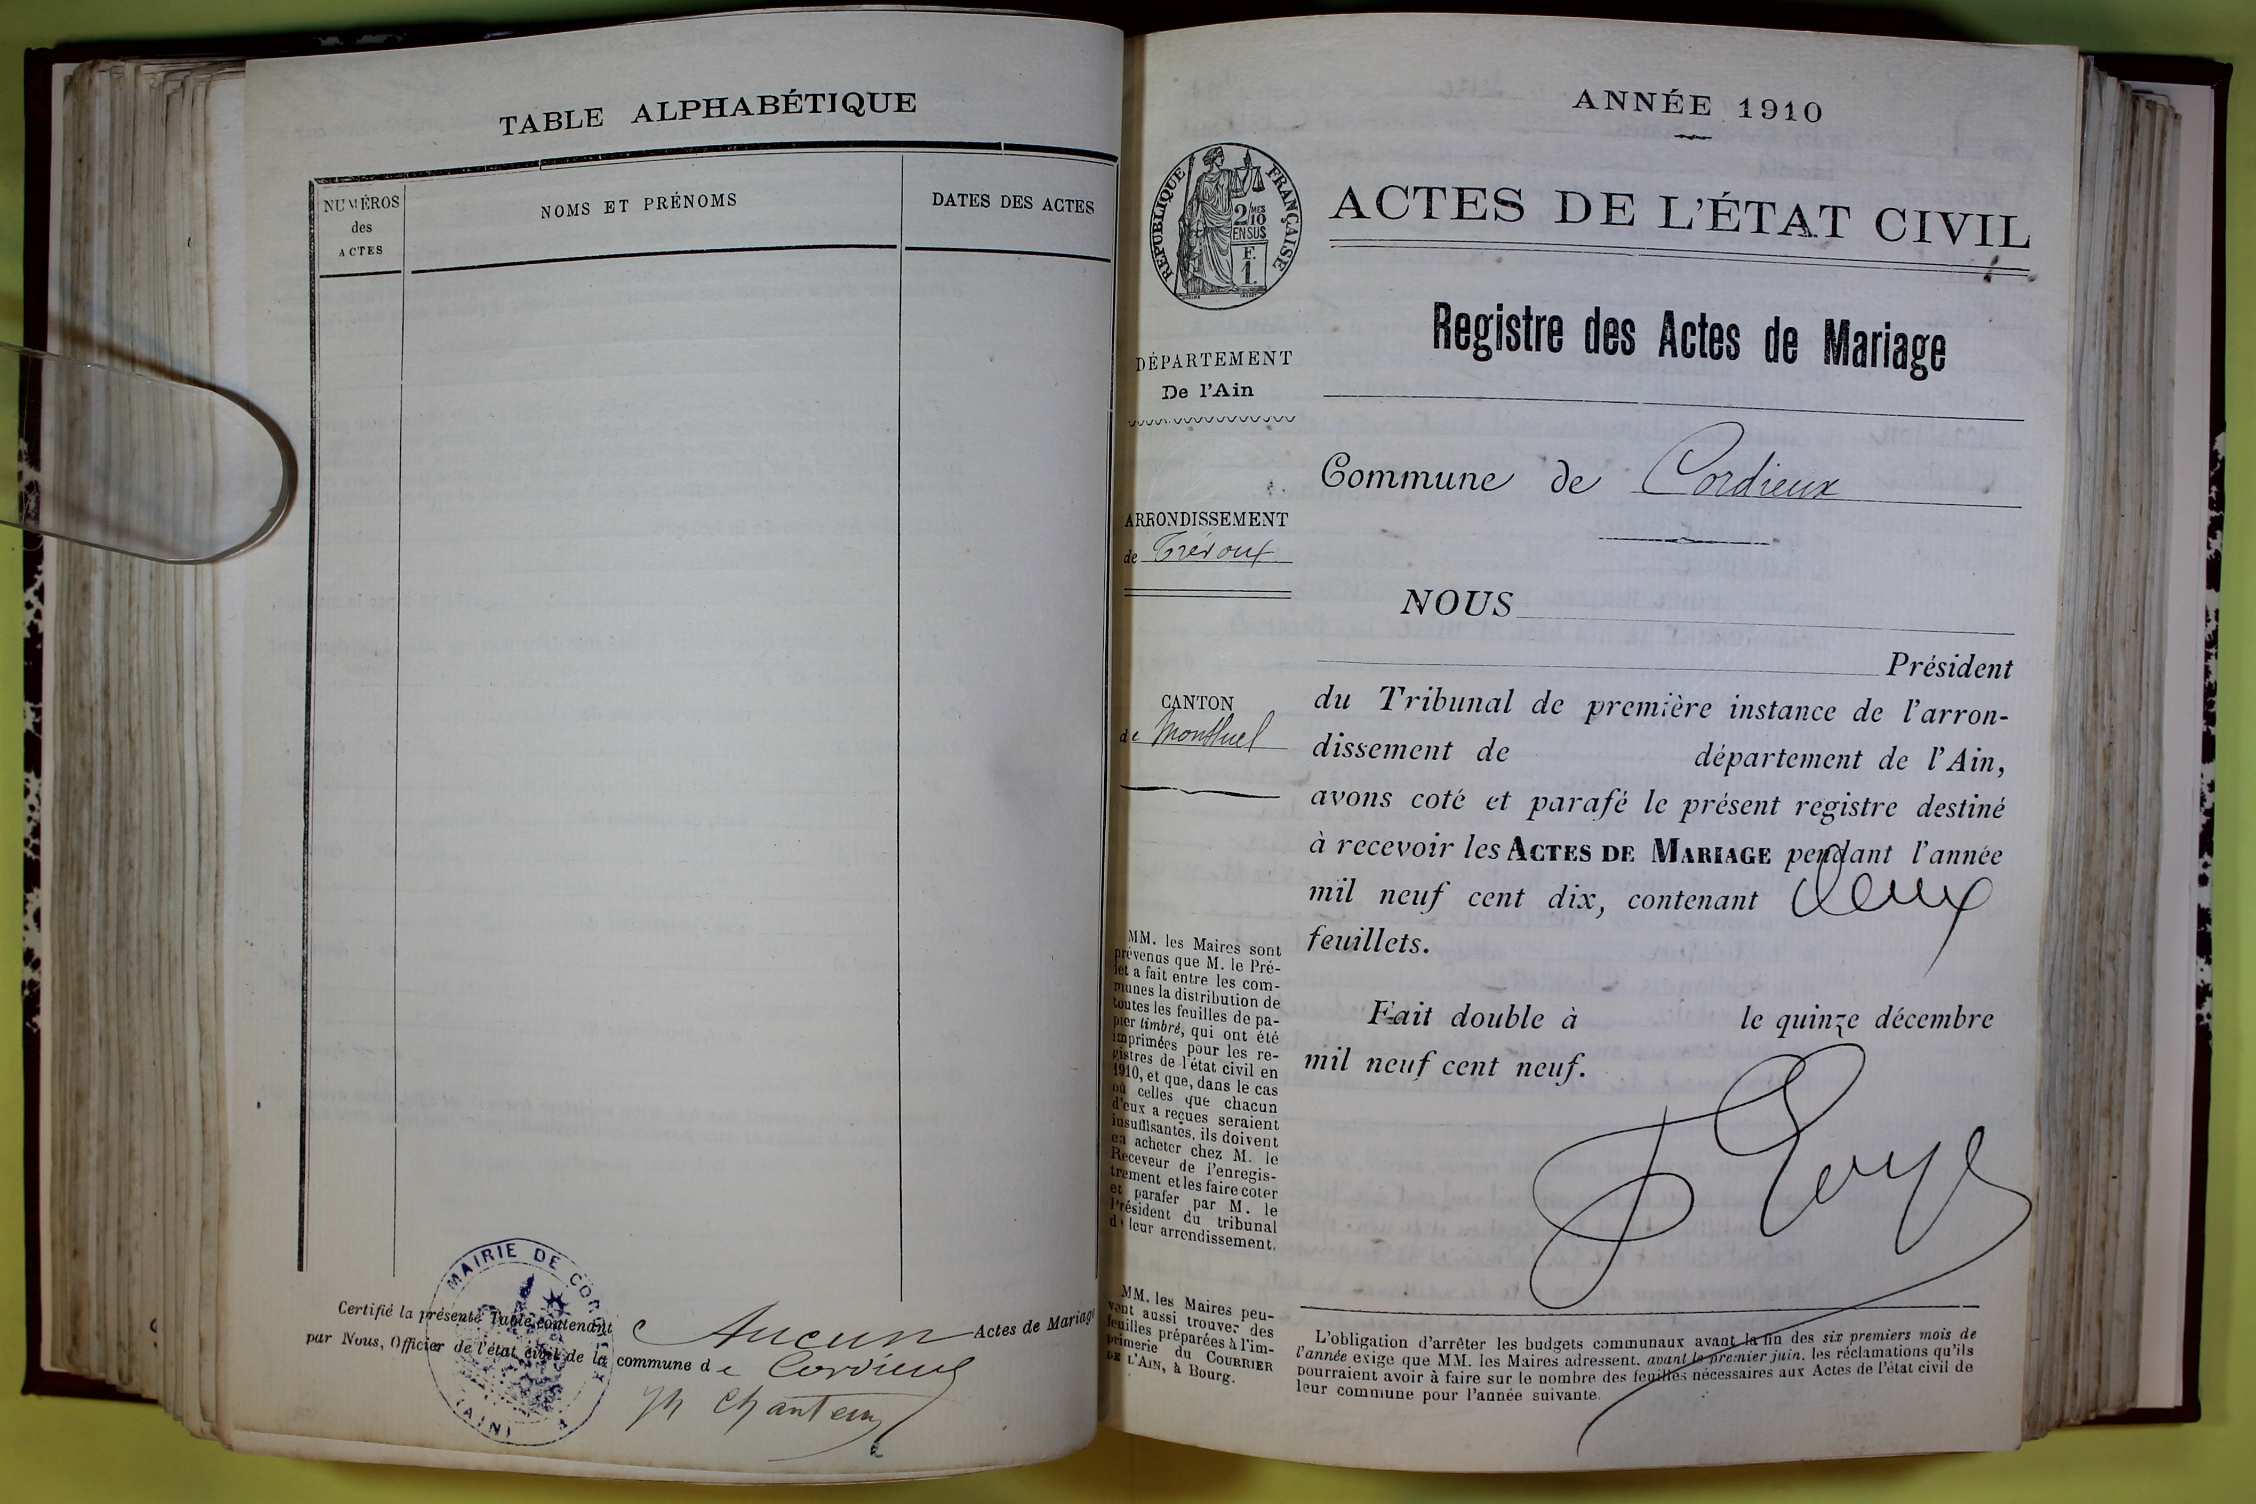 TABLE ALPHABÉTIQUE
NUMÉROS
des
ACTES
NOMS ET PRÉNOMS
DATES DES ACTES
MAIRIE DE CORDIEUX
(AIN)
Certifié la présente Table contenant Aucun Actes de Mariage
par Nous, Officier de l'état civil de la commune de Cordieux
ANNÉE 1910
RÉPUBLIQUE FRANÇAISE
2/MES
10
EN SUS
F.
1.
ACTES DE L'ÉTAT CIVIL
Registre des Actes de Mariage
DÉPARTEMENT
De l'Ain
Commune de Cordieux
ARRONDISSEMENT
de Trévoux
CANTON
de Montluel
NOUS
Président
du Tribunal de première instance de l'arron-
dissement de département de l'Ain,
avons coté et parafé le présent registre destiné
à recevoir les ACTES DE MARIAGE pendant l'année
mil neuf cent dix, contenant deux
feuillets.
Fait double à le quinze décembre
mil neuf cent neuf.
MM. les Maires sont
prévenus que M. le Pré-
fet a fait entre les com-
munes la distribution de
toutes les feuilles de pa-
pier timbré, qui ont été
imprimées pour les re-
gistres de l'état civil en
1910, et que, dans le cas
où celles que chacun
d'eux a reçues seraient
insuffisantes, ils doivent
en acheter chez M. le
Receveur de l'enregis-
trement et les faire coter
et parafer par M. le
Président du tribunal
de leur arrondissement.
MM. les Maires peu-
vent aussi trouver des
feuilles préparées à l'im-
primerie du COURRIER
DE L'AIN, à Bourg.
L'obligation d'arrêter les budgets communaux avant la fin des six premiers mois de
l'année exige que MM. les Maires adressent, avant le premier juin, les réclamations qu'ils
pourraient avoir à faire sur le nombre des feuilles nécessaires aux Actes de l'état civil de
leur commune pour l'année suivante.